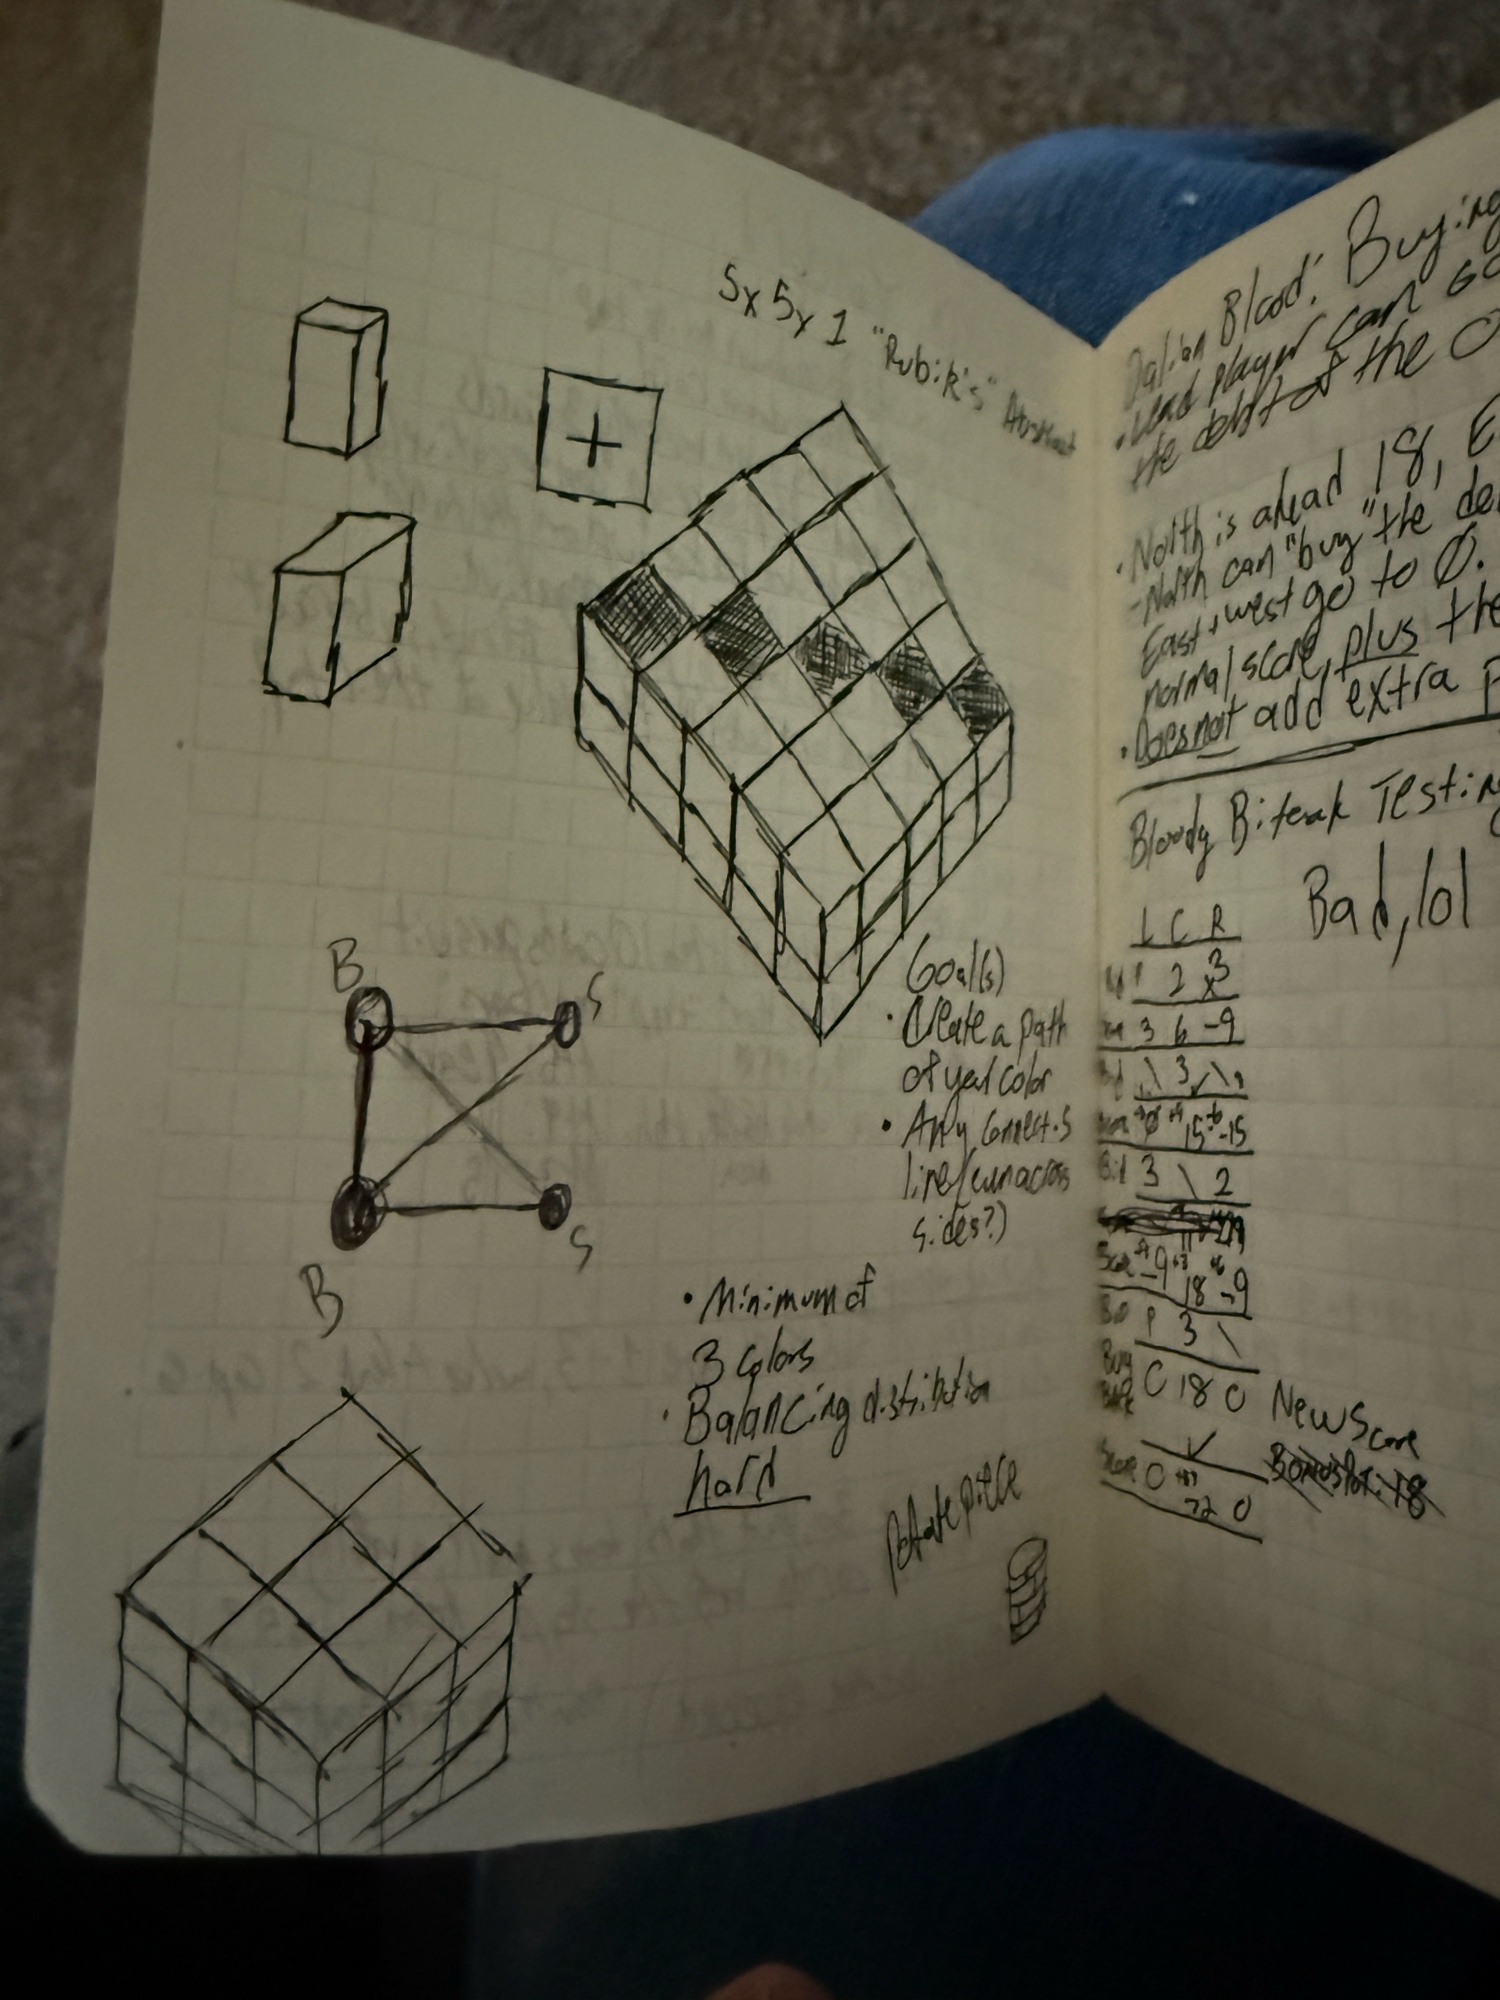 5x5x1 "Rubik's" Abstract
B
S
B
S
Goal(s)
• Create a path
of your color
• Any connects
line (even across
sides?)
• Minimum of
3 colors
• Balancing distribution
hard
Rotate piece
Blood: Buying
• Lead player can
the debt of the
• North is ahead 18, E
- North can "buy" the de
East + West go to Ø.
normal score, plus the
• Does not add extra P
Bloody Biteak Testing
Bad, lol
L C R
2 3
3 6 -9
Bid \ 3 \
15 -15
Bid 3 \ 2
Score -9 18 -9
P 3 \
Buy
0 18 0
New Score
Score 0 72 0
Bonus Pot: 18